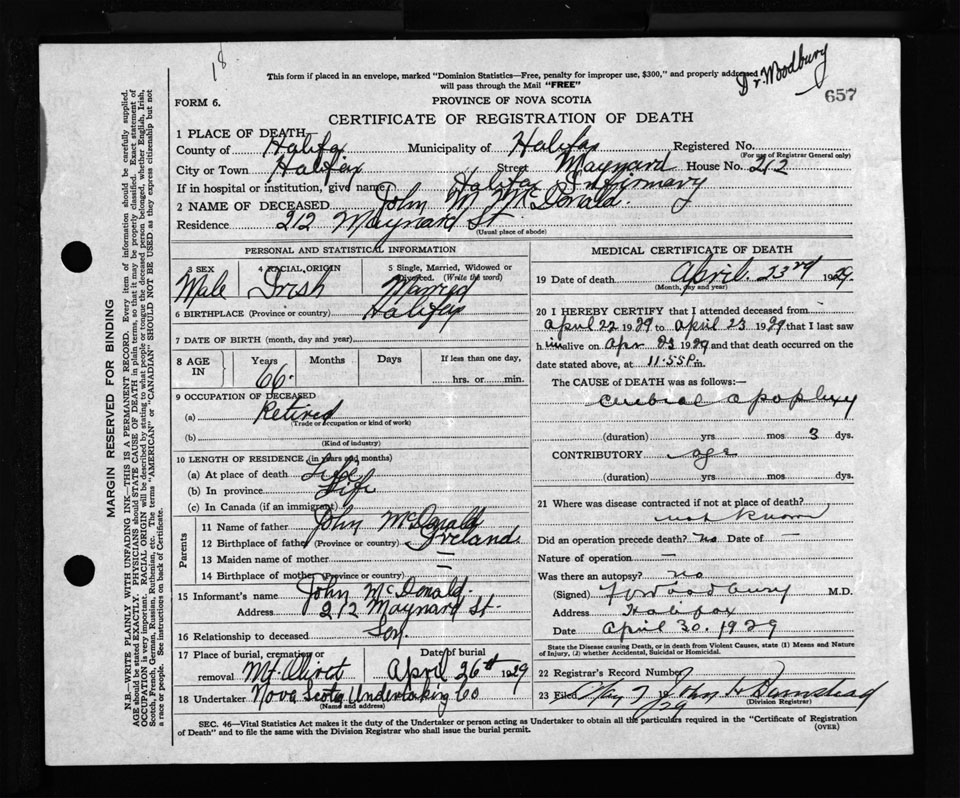 18
This form if placed in an envelope, marked "Dominion Statistics—Free, penalty for improper use, $300," and properly addressed
will pass through the Mail "FREE"
Dr. Woodbury
657
FORM 6.
PROVINCE OF NOVA SCOTIA
CERTIFICATE OF REGISTRATION OF DEATH
1 PLACE OF DEATH
County of Halifax Municipality of Halifax Registered No.
(For use of Registrar General only)
City or Town Halifax Street Maynard House No. 212
If in hospital or institution, give name Halifax Infirmary
2 NAME OF DECEASED John M McDonald.
Residence 212 Maynard St.
(Usual place of abode)
PERSONAL AND STATISTICAL INFORMATION
3 SEX 4 RACIAL ORIGIN 5 Single, Married, Widowed or
Divorced. (Write the word)
Male Irish Married
6 BIRTHPLACE (Province or country) Halifax
7 DATE OF BIRTH (month, day and year)
8 AGE IN Years Months Days If less than one day,
66. hrs. or min.
9 OCCUPATION OF DECEASED
(a) Retired
(Trade or occupation or kind of work)
(b)
(Kind of industry)
10 LENGTH OF RESIDENCE (in years and months)
(a) At place of death Life
(b) In province Life
(c) In Canada (if an immigrant)
Parents
11 Name of father John McDonald
12 Birthplace of father (Province or country) Ireland
13 Maiden name of mother —
14 Birthplace of mother (Province or country) —
15 Informant's name John McDonald.
Address 212 Maynard St.
16 Relationship to deceased Son.
17 Place of burial, cremation or removal Date of burial
Mt. Olivet April 26th 1929
18 Undertaker Nova Scotia Undertaking Co
(Name and address)
MEDICAL CERTIFICATE OF DEATH
19 Date of death April. 23rd 1929.
(Month, day and year)
20 I HEREBY CERTIFY that I attended deceased from
April 22 1929 to April 23 1929 that I last saw
him alive on Apr 23 1929 and that death occurred on the
date stated above, at 11.55 P.m.
The CAUSE of DEATH was as follows:—
Cerebral apoplexy
(duration) yrs mos 3 dys.
CONTRIBUTORY age
(duration) yrs mos dys.
21 Where was disease contracted if not at place of death?
not known
Did an operation precede death? no Date of —
Nature of operation —
Was there an autopsy? no
(Signed) F Woodbury M.D.
Address Halifax
Date April 30. 1929
State the Disease causing Death, or in death from Violent Causes, state (1) Means and Nature
of Injury, (2) whether Accidental, Suicidal or Homicidal.
22 Registrar's Record Number
23 Filed May 7 John H Barnstead
/29 (Division Registrar)
SEC. 46—Vital Statistics Act makes it the duty of the Undertaker or person acting as Undertaker to obtain all the particulars required in the "Certificate of Registration
of Death" and to file the same with the Division Registrar who shall issue the burial permit.
(OVER)
MARGIN RESERVED FOR BINDING
N.B.—WRITE PLAINLY WITH UNFADING INK—THIS IS A PERMANENT RECORD. Every item of information should be carefully supplied.
AGE should be stated EXACTLY. PHYSICIANS should STATE CAUSE OF DEATH in plain terms, so that it may be properly classified. Exact statement of
OCCUPATION is very important. RACIAL ORIGIN will be described by stating to what people or tongue the deceased person belonged, whether English, Irish,
Scotch, French, German, Russian, Ruthenian, etc. The terms "AMERICAN" or "CANADIAN" SHOULD NOT BE USED as they express citizenship but not
a race or people. See instructions on back of Certificate.